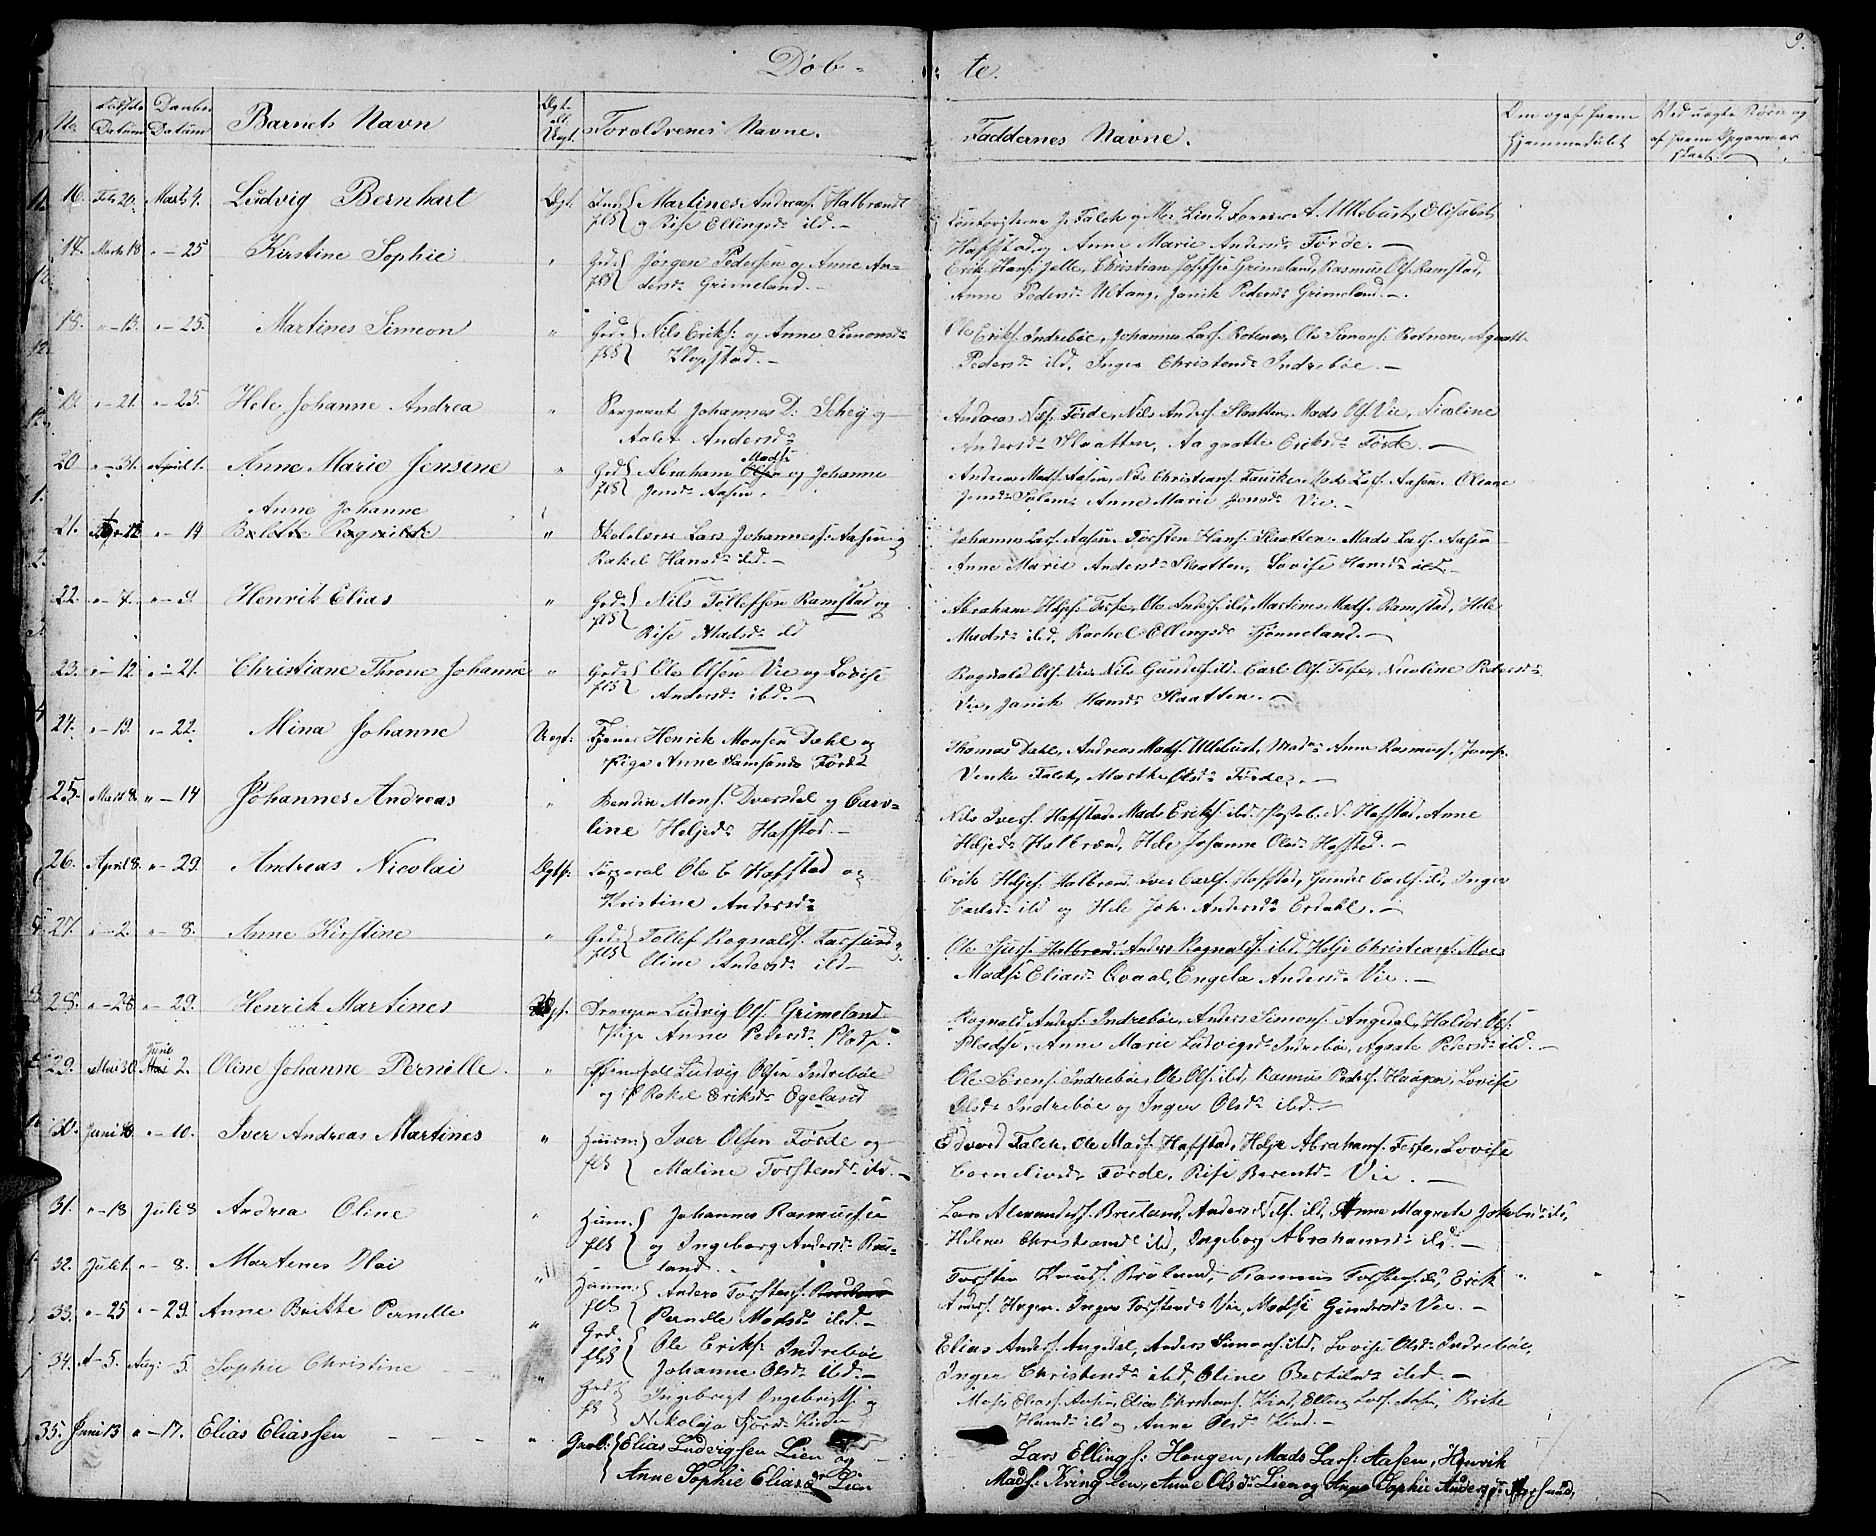 9.
Døb- te.
No. Fødsels Datum Daabens Datum Barnets Navn Ægt. ell. Uegt. Forældrenes Navne. Faddernes Navne. Om og af hvem Hjemmedøbt Ved uægte Børn og af hvem Opgaven er skeet.
16. Feb 20. Marts 4. Ludvig Bernhart Ægt. Martines Andreas. Halbrendt
og Rise Ellingsd. ibd. —
J. Falch og Lind, A. Ullebust, Elisabet
Hafstad og Anne Marie Andersd. Førde. —
17. Marts 18 " — 25 Kirstine Sophie " Grd. fls Jørgen Pedersen og Anne An-
dersd. Grimeland. —
Erik Hans. Jelle, Christian Josefsen Grimeland, Rasmus Ols. Ramstad,
Anne Pedersd. Ultang, Janik Pedersd. Grimeland. —
18. " — 13. " — 25. Martines Simeon " Grd. fls Nils Eriks. og Anne Simonsd.
Klopstad. —
Ole Eriks. Indrebøe, Johannes Lars. Botnen, Ole Simons. Botnen, Agaatte
Pedersd. ibd. Inger Christensd. Indrebøe. —
19. " — 21. " — 25. Hele Johanne Andrea " Sergeant Johannes D. Scheig og
Aalet Andersd.
Andreas Nils. Førde, Nils Anders. Slaatten, Mads Ols. Vie, Nicoline
Andersd. Slaatten, Aagaatte Eriksd. Førde. —
20 " — 31. April 1. Anne Marie Jensine " Grd. fls Abraham Olsen Mads. og Johanne
Jensd. Aasen.
Andreas Mads. Aasen, Nils Christians. Mads Lars. Aasen. Oliane
Jensd. Solem. Anne Marie Jensd. Vie. —
Anne Johanne
21. Apr. 12 " — 14 Bolette Ragnilde " Skolelærer Lars Johanness. Aasen og
Rakel Hansd. ibd. —
Johannes Lars. Aasen. Torsten Hans. Slaatten. Mads Lars. Aasen
Anne Marie Andersd. Slaatten, Lovise Hansd. ibd. —
22. " — 7. " — 9. Henrik Elias " Grd. fls Nils Tollefsen Ramstad og
Rise Madsd. ibd
Abraham Heljes. Ole Anders. ibd, Martines Mads. Ramstad, Hele
Madsd. ibd, Rachel Ellingsd. Tjønneland. —
23. " — 12. " — 21. Christiane Throne Johanne " Grd. fls Ole Olsen Vie og Lovise
Andersd. ibd. —
Rognald Ols. Vie, Nils Gunders. ibd. Carl Ols. Nicoline Pedersd.
Vie, Janik Hansd. Slaatten. —
24. " — 19. " — 22. Mina Johanne Uegt. Henrik Monsen Dahl og
Pige Anne Hansd. Førde
Thomas Dahl, Andreas Mads. Ullebust, Anne Rasmuss. Jomf.
Venke Falch, Marthe Olsd. Førde. —
25. Marts 8. " — 14 Johannes Andreas " Bendix Mons. Dvergdal og Caro-
line Heljed. Hafstad. —
Nils Ivers. Hafstad. Mads Eriks. ibd. N. Hafstad. Anne
Heljed. Halbrend, Hele Johanne Olsd. Hafstad. —
26. April 8. " — 29. Andreas Nicolai Ægtf. Korporal Ole C Hafstad og
Kristine Andersd.
Erik Heljes. Halbrend. Iver Carls. Hafstad, Gunder Carls. ibd, Inger
Carlsd. ibd og Hele Joh. Andersd. Erdahl. —
27. " — 2. " — 8. Anne Kirstine " Grd. fls Tollef Rognalds. Farsund
Oline Andersd. ibd —
Ole Sjurs. Halbrend. Anders Rognalds. ibd. Helje Christians. Moe
Madsi Eliasd. Qvaal, Engela Andersd. Vie. —
28. " — 28 " — 29. Henrik Martines Ludvig Ols. Grimeland
Pige Anne Pedersd. Pladse.
Rognald Anders. Indrebøe, Anders Simons. Angedal, Haldor Ols.
Pladse, Anne Marie Ludvigsd. Indrebøe, Agaate Pedersd. ibd. —
29. Mai 30. Juni Mai 2. Oline Johanne Pernille. " Ludvig Olsen Indrebøe
og Rakel Eriksd. Egeland
Ole Sørens. Indrebøe, Ole Ols. ibd, Rasmus Peders. Haugen, Lovise
Olsd. Indrebøe og Inger Olsd. ibd. —
30. Juni 10. " — 10. Iver Andreas Martines " Huusm. fls Iver Olsen Førde og
Maline Torstensd. ibd. —
Edvard Falch, Ole Mads. Hafstad, Helje Abrahams. Lovise
Corneliusd. Førde, Rise Berentsd. Vie. —
31. " — 18 Juli 8 Andrea Oline " Huusm. fls Johannes Rasmussen
og Ingeborg Andersd. Brue-
land. —
Lars Alexanders. Brueland, Anders Nils. ibd, Anne Magrete Jakobsd. ibd,
Helene Christiansd. ibd, Ingeborg Abrahamsd. ibd. —
32. Juli 1. " — 8. Martines Olai " Huusm. fls Anders Torstens. Brueland
Pernille Madsd. ibd. —
Torsten Knuds. Brueland, Rasmus Torstens. ibd, Erik
Anders. Hagen. Inger Torstensd. Vie, Madsi Gundersd. Vie. —
33. " — 25 " — 29. Anne Britte Pernille " Grd. fls Ole Eriks. Indrebøe
Johanne Olsd. ibd. —
Elias Anders. Angedal, Anders Simons. ibd, Lovise Olsd. Indrebøe,
Inger Christensd. ibd, Oline Bertilsd. ibd. —
34. A — 5. Aug. 5. Sophie Christine " Grd. fls Ingebrigt Ingebrigts. og
Nikoloja
Mads Elias. Aasen, Elias Christians. Kind, Elling Lars. Brite
Hansd. ibd og Anne Olsd. Kind. —
35. Juni 13 " — 17. Elias Eliassen " Grdb. Elias Ludvigsen Lien og
Anne Sophie Eliasd. Lien
Lars Ellings. Haugen, Mads Lars. Aasen, Henrik
Mads. Kvinglen, Anne Olsd. Lien og Anne Sophie Andersd. Farsund,